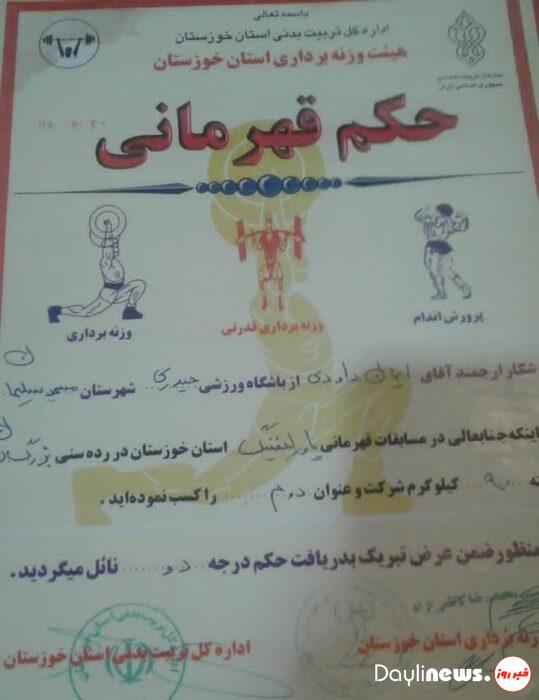 باسمه تعالی
اداره کل تربیت بدنی استان خوزستان
هیئت وزنه برداری استان خوزستان
سازمان تربیت بدنی
جمهوری اسلامی ایران
حکم قهرمانی
پرورش اندام
وزنه برداری قدرتی
وزنه برداری
شگار ارجمند آقای ایمان داودی از باشگاه ورزشی حیدری شهرستان مسجد سلیمان
اینکه جنابعالی در مسابقات قهرمانی پاورلیفتینگ استان خوزستان در رده سنی بزرگسالان
۹۰ کیلو گرم شرکت و عنوان دوم را کسب نموده اید .
منظور ضمن عرض تبریک بدریافت حکم درجه دو نائل میگردید .
وزنه برداری استان خوزستان
اداره کل تربیت بدنی استان خوزستان
Daylinews.
خبر روز